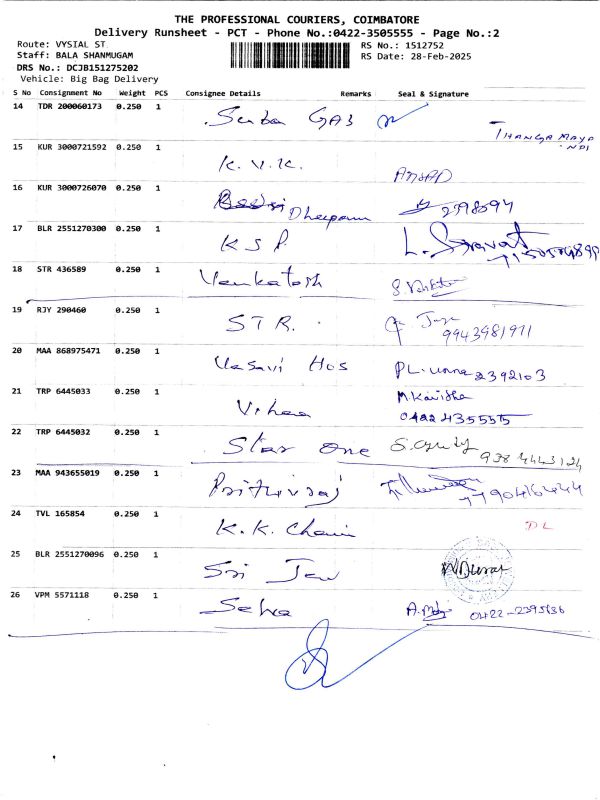 THE PROFESSIONAL COURIERS, COIMBATORE
Delivery Runsheet - PCT - Phone No.:0422-3505555 - Page No.:2
Route: VYSIAL ST RS No.: 1512752
Staff: BALA SHANMUGAM RS Date: 28-Feb-2025
DRS No.: DCJB151275202
Vehicle: Big Bag Delivery
S No Consignment No Weight PCS Consignee Details Remarks Seal & Signature
14 TDR 200060173 0.250 1 Suba GAS
15 KUR 3000721592 0.250 1 K.V.K. ANSAD
16 KUR 3000726070 0.250 1 Dheepam 2398594
17 BLR 2551270300 0.250 1 KSP. L.
18 STR 436589 0.250 1 Venkatesh
19 RJY 290460 0.250 1 STR. 9943981971
20 MAA 868975471 0.250 1 Vasavi Hos 2392103
21 TRP 6445033 0.250 1 Vihaa M.Kavitha
0422 4355555
22 TRP 6445032 0.250 1 Star One
23 MAA 943655019 0.250 1 Prithviraj
24 TVL 165854 0.250 1 K.K. DL
25 BLR 2551270096 0.250 1 Sri
26 VPM 5571118 0.250 1